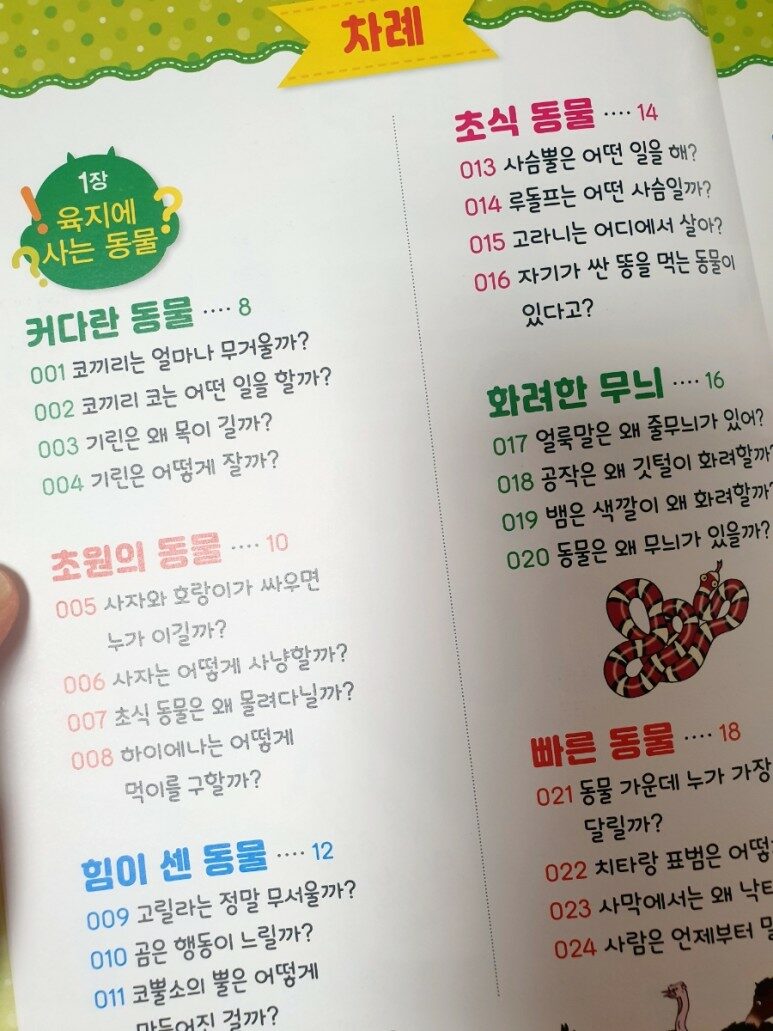 차례
1장
육지에
사는 동물
커다란 동물 ···· 8
001 코끼리는 얼마나 무거울까?
002 코끼리 코는 어떤 일을 할까?
003 기린은 왜 목이 길까?
004 기린은 어떻게 잘까?
초원의 동물 ···· 10
005 사자와 호랑이가 싸우면
누가 이길까?
006 사자는 어떻게 사냥할까?
007 초식 동물은 왜 몰려다닐까?
008 하이에나는 어떻게
먹이를 구할까?
힘이 센 동물 ···· 12
009 고릴라는 정말 무서울까?
010 곰은 행동이 느릴까?
011 코뿔소의 뿔은 어떻게
만들어진 걸까?
초식 동물 ···· 14
013 사슴뿔은 어떤 일을 해?
014 루돌프는 어떤 사슴일까?
015 고라니는 어디에서 살아?
016 자기가 싼 똥을 먹는 동물이
있다고?
화려한 무늬 ···· 16
017 얼룩말은 왜 줄무늬가 있어?
018 공작은 왜 깃털이 화려할까?
019 뱀은 색깔이 왜 화려할까?
020 동물은 왜 무늬가 있을까?
빠른 동물 ···· 18
021 동물 가운데 누가 가장
달릴까?
022 치타랑 표범은
023 사막에서는 왜
024 사람은 언제부터